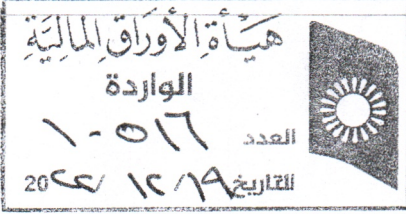 هيأة الأوراق المالية
الواردة
العدد ١٠٥١٦
التاريخ ١٩/ ١٢/ 20٢٢